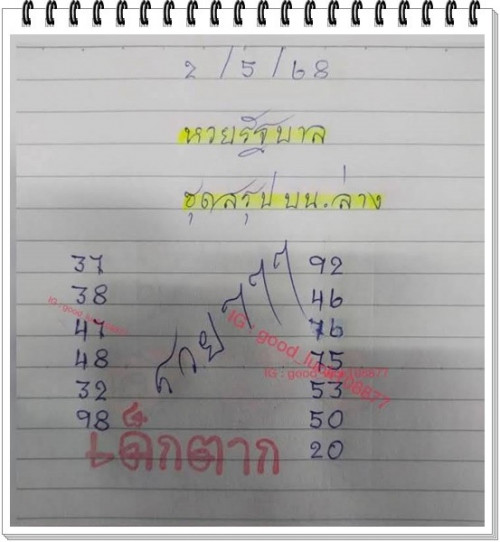 2/5/68
หวยรัฐบาล
ชุดสรุป บน.ล่าง
37 92
38 46
47 76
48 75
32 53
98 50
20
เด็กตาก
IG : good_lu